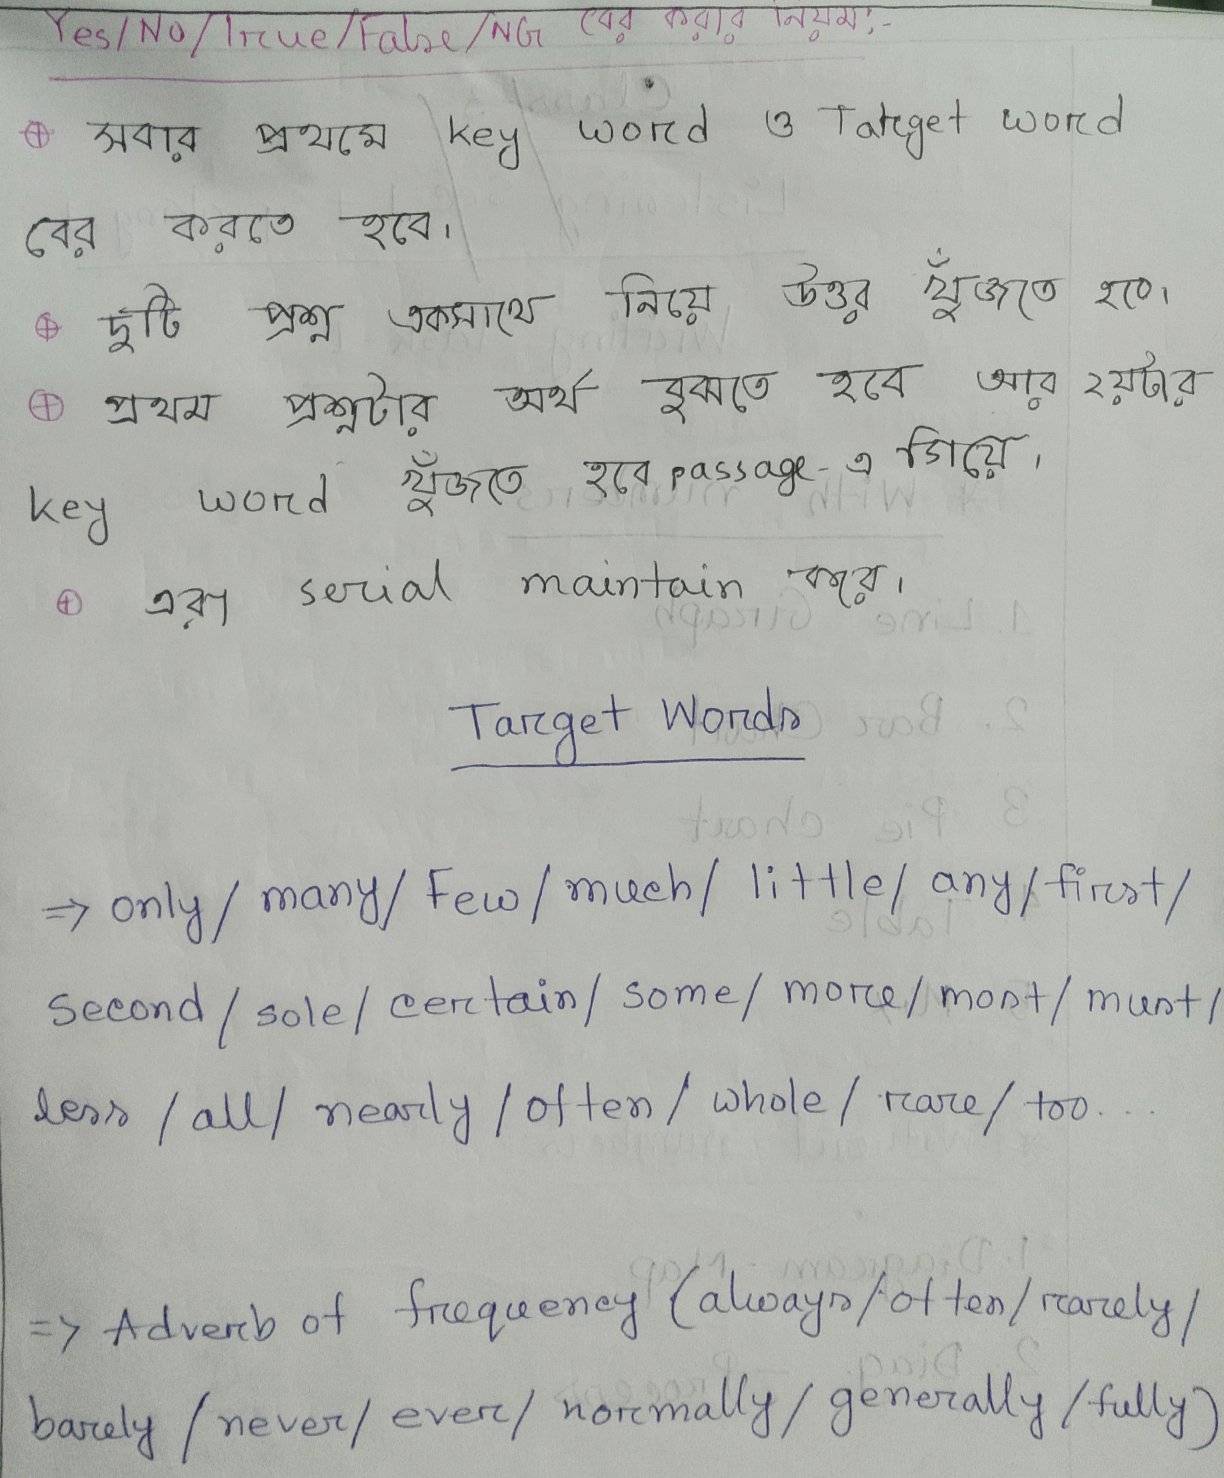 Yes/No/True/False/NG বের করার নিয়ম:-
⊕ সবার প্রথমে key word ও Target word
বের করতে হবে।
⊕ দুটি প্রশ্ন একসাথে নিয়ে উত্তর খুঁজতে হবে।
⊕ প্রথম প্রশ্নটার অর্থ বুঝতে হবে আর ২য়টার
key word খুঁজতে হবে passage-এ গিয়ে।
⊕ এরা serial maintain করে।
Target Words
⇒ only/ many/ Few/ much/ little/ any/ first/
second/ sole/ certain/ some/ more/ most/ must/
less/ all/ nearly/ often/ whole/ rare/ too...
=> Adverb of frequency (always/often/rarely/
barely/never/ever/normally/generally/fully)